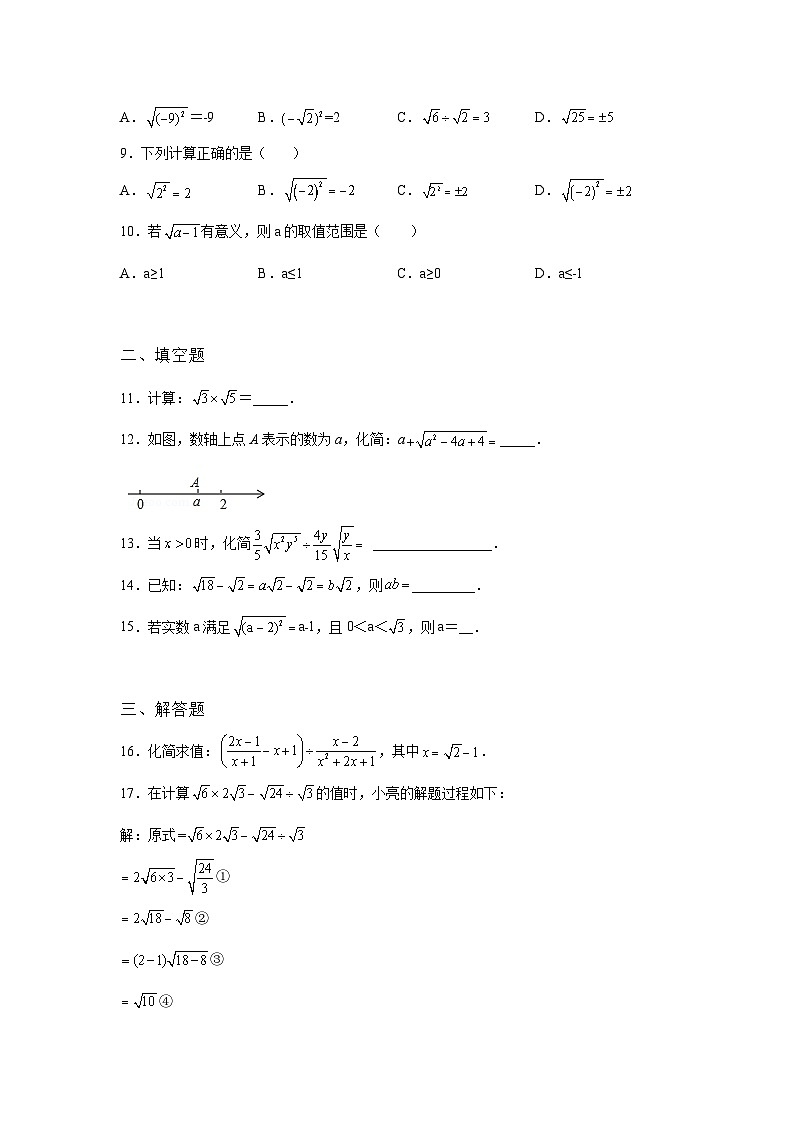 A．√(−9)²＝-9 B．(−√2)²=2 C．√6÷√2=3 D．√25=±5
9．下列计算正确的是（ ）
A．√2²=2 B．√(−2)²=−2 C．√2²=±2 D．√(−2)²=±2
10．若√a−1有意义，则 a 的取值范围是（ ）
A．a≥1 B．a≤1 C．a≥0 D．a≤-1
二、填空题
11．计算：√3×√5＝_____．
12．如图，数轴上点 A 表示的数为 a，化简：a+√a²−4a+4=_____．
A
0 a 2
13．当 x>0 时，化简 3/5 √x²y⁵ ÷ 4y/15 √y/x = _________________．
14．已知：√18−√2=a√2−√2=b√2，则 ab=_________．
15．若实数 a 满足 √(a−2)²=a-1，且 0＜a＜√3，则 a＝__．
三、解答题
16．化简求值：((2x−1)/(x+1)−x+1)÷(x−2)/(x²+2x+1)，其中 x=√2−1．
17．在计算 √6×2√3−√24÷√3 的值时，小亮的解题过程如下：
解：原式=√6×2√3−√24÷√3
=2√6×3−√24/3①
=2√18−√8②
=(2−1)√18−8③
=√10④